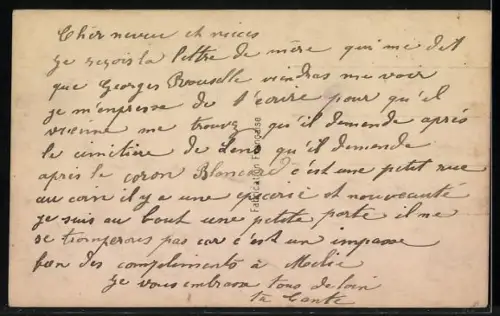 Cher neveu et nieces
je reçois la lettre de mère qui me dit
que Georges Rouselle viendras me voir
je m'empresse de t'écrire pour qu'il
vienne me trouvez qu'il demende après
le cimitière de Lens qu'il demende
après le coron c'est une petit rue
au coin il y a une epicerie et nouveauté
je suis au bout une petite porte il ne
se tromperous pas car c'est un impasse
des compliments à
je vous embrasse tous de loin
ta tante
Fabrication Française